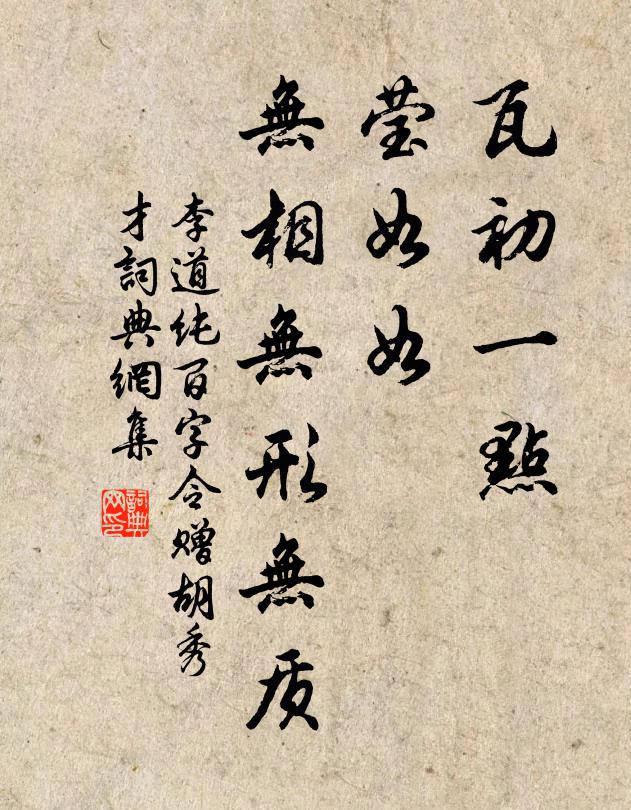 瓦初一點
莹如如
無相無形無质
李道纯百字令赠胡秀
才詞典網集
詞典
网印